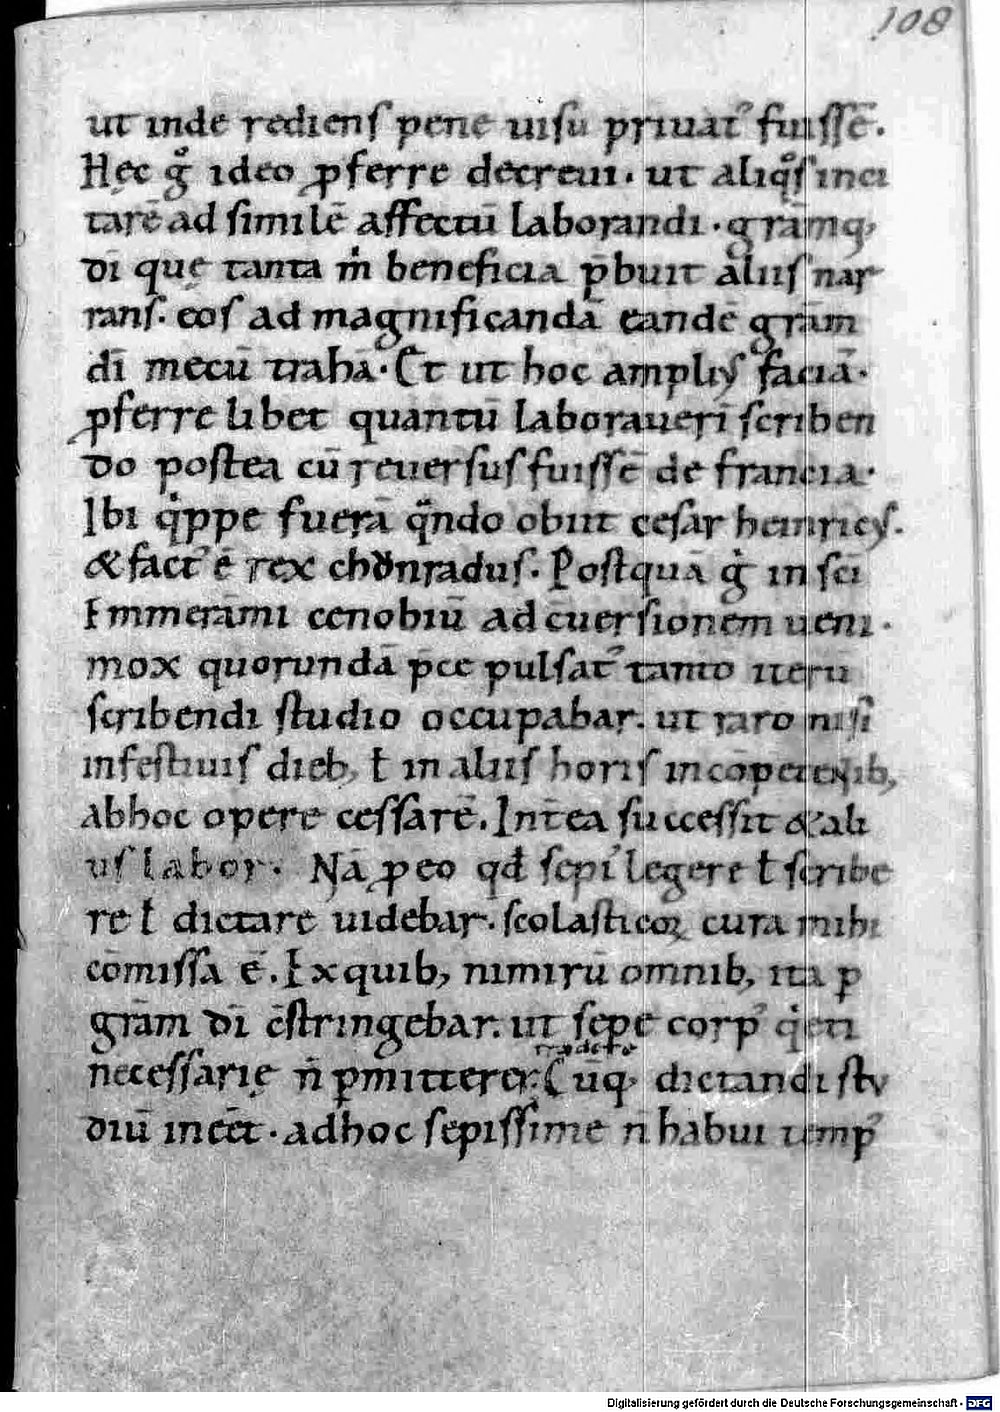 108
ut inde rediens pene uisu priuat᾽ fuissē.
Hęc gͦ ideo ꝓferre decreui. ut aliqͦs inci
tarē ad similē affectū laborandi. grām̄q;
dī quę tanta m̍ beneficia p̄buit aliis nar
rans. eos ad magnificandā eandē grām̄
dī mecū trahā. Et ut hoc amplius faciā.
ꝓferre libet quantū laborauerī scriben
do postea cū reuersus fuissē de francia.
Ibi qͥppe fuerā qͣndo obiit cesar heinricus.
& fact᾽ ē rex chǒnradus. Postquā gͥ in scī
Emmerāmi cenobiū ad c̄uersionem ueni.
mox quorundā p̄ce pulsat᾽ tanto iterū
scribendi studio occupabar. ut raro nisi
infestiuis dieb; ł in aliis horis incōpetentib;
abhoc opere cessarē. Int̄ea successit & ali
us labor. Nā ꝓ eo qđ sepi᾽ legere ł scribe
re ł dictare uidebar. scolasticoꝝ cura mihi
cōmissa ē. Exquib; nimirū omnib; ita ꝑ
grām̄ dī c̄stringebar. ut sepe corp᾽ qͥeti
tradere
necessarię n̄ ꝑmitterer. Cūq; dictandi stu
diū inēēt. adhoc sepissime n̄ habui temp᾽
Digitalisierung gefördert durch die Deutsche Forschungsgemeinschaft - DFG